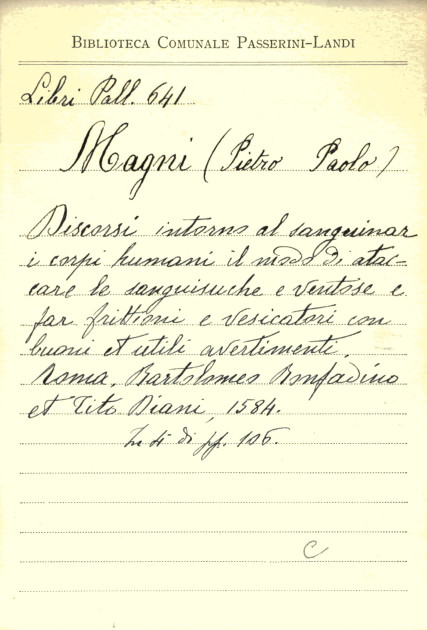 BIBLIOTECA COMUNALE PASSERINI-LANDI
Libri Pall. 641
Magni (Pietro Paolo)
Discorsi intorno al sanguinar
i corpi humani il modo di atac-
care le sanguisuche e ventose e
far frittioni e vesicatori con
buoni et utili avertimenti.
Roma, Bartolomeo Bonfadino
et Tito Diani, 1584.
In 4° di pp. 106.
C